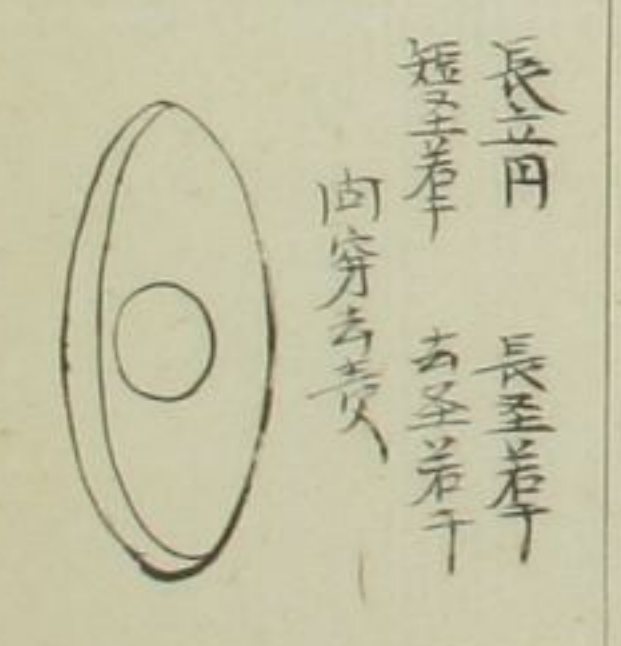 長立円　長圣若干
短圣若干　去圣若干
問穿去責